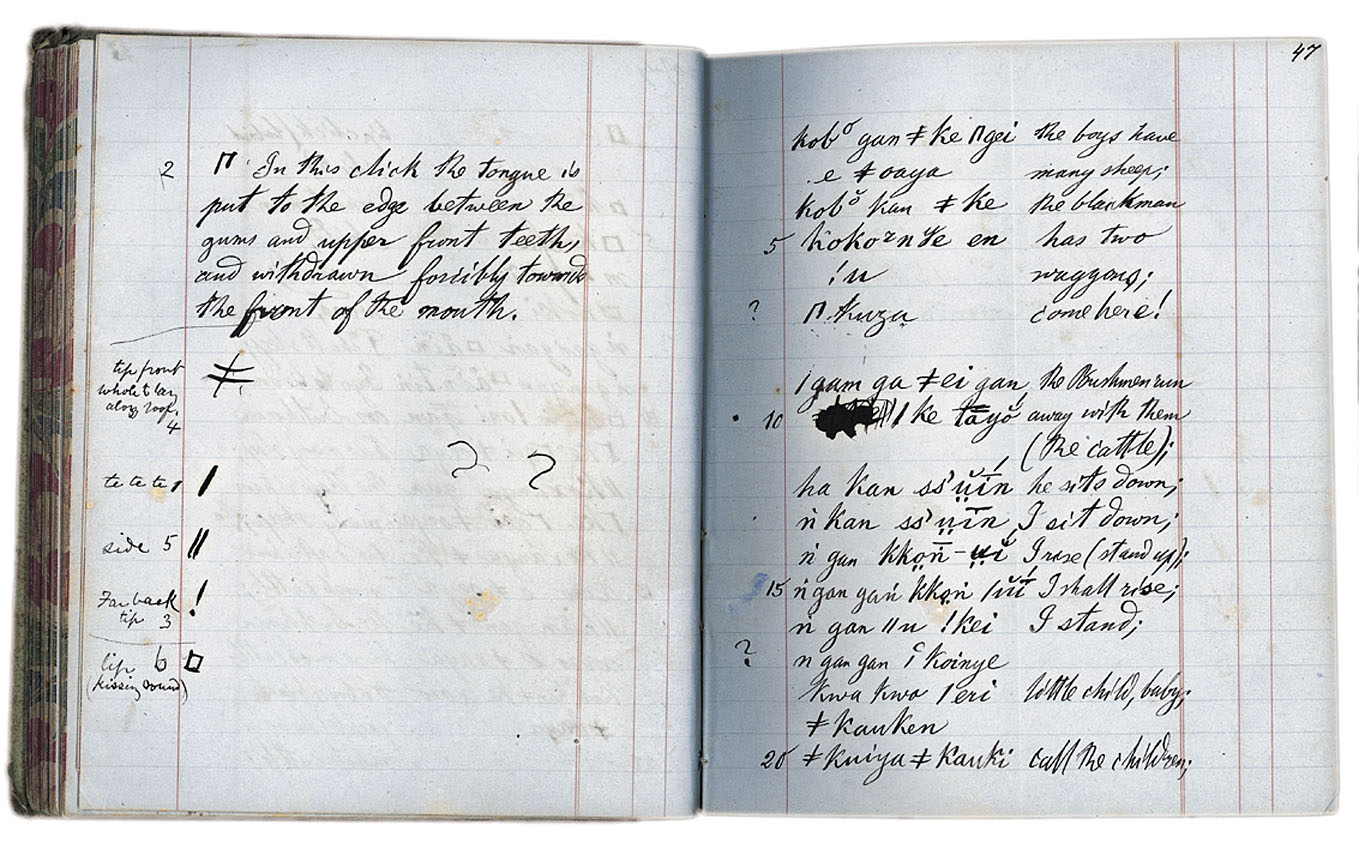 2 ⊓ In this click the tongue is
put to the edge between the
gums and upper front teeth,
and withdrawn forcibly towards
the front of the mouth.
tip front ǂ
whole
along roof,
4
te te te 1 ǀ
side 5 ǁ
Far back !
tip 3
lip 6 □
(kissing sound)
? ?
47
kob° gan ǂke ⊓gei the boys have
e ǂoaya many sheep;
kob° kan ǂke the blackman
5 en has two
!u waggons;
? ⊓kuza come here!
ǀgam ga ǂei gan the Bushmen run
10 ǀke tāyŏ away with them
(the cattle);
ha kan ss'ṳĭń he sits down;
ń kan ss'ṳīn I sit down;
ń gan kkọn̄-ṳĭ I rise (stand up);
15 ń gan gań kkọń I shall rise;
ń gan ǁn !kei I stand;
? n gan gan koinye
kwa kwa ǀeri little child, baby;
ǂkauken
20 ǂkuiya ǂkauki call the children;